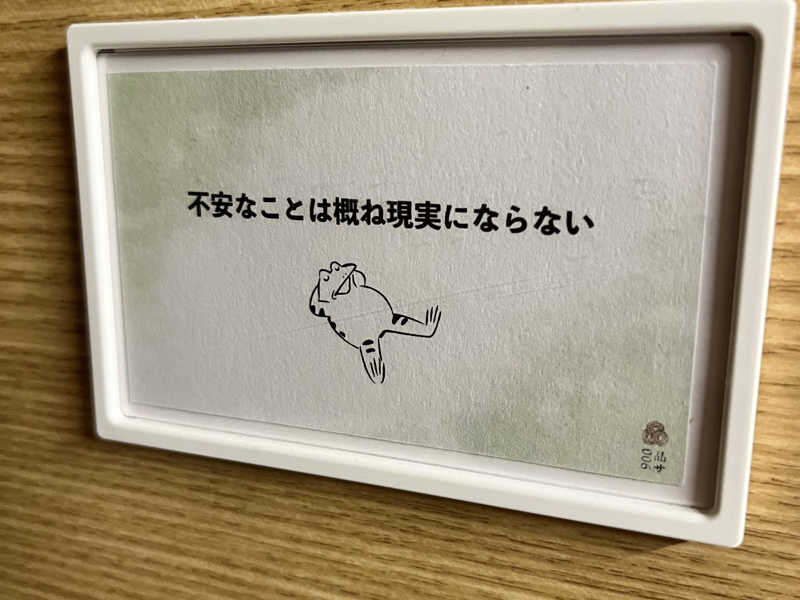 不安なことは概ね現実にならない